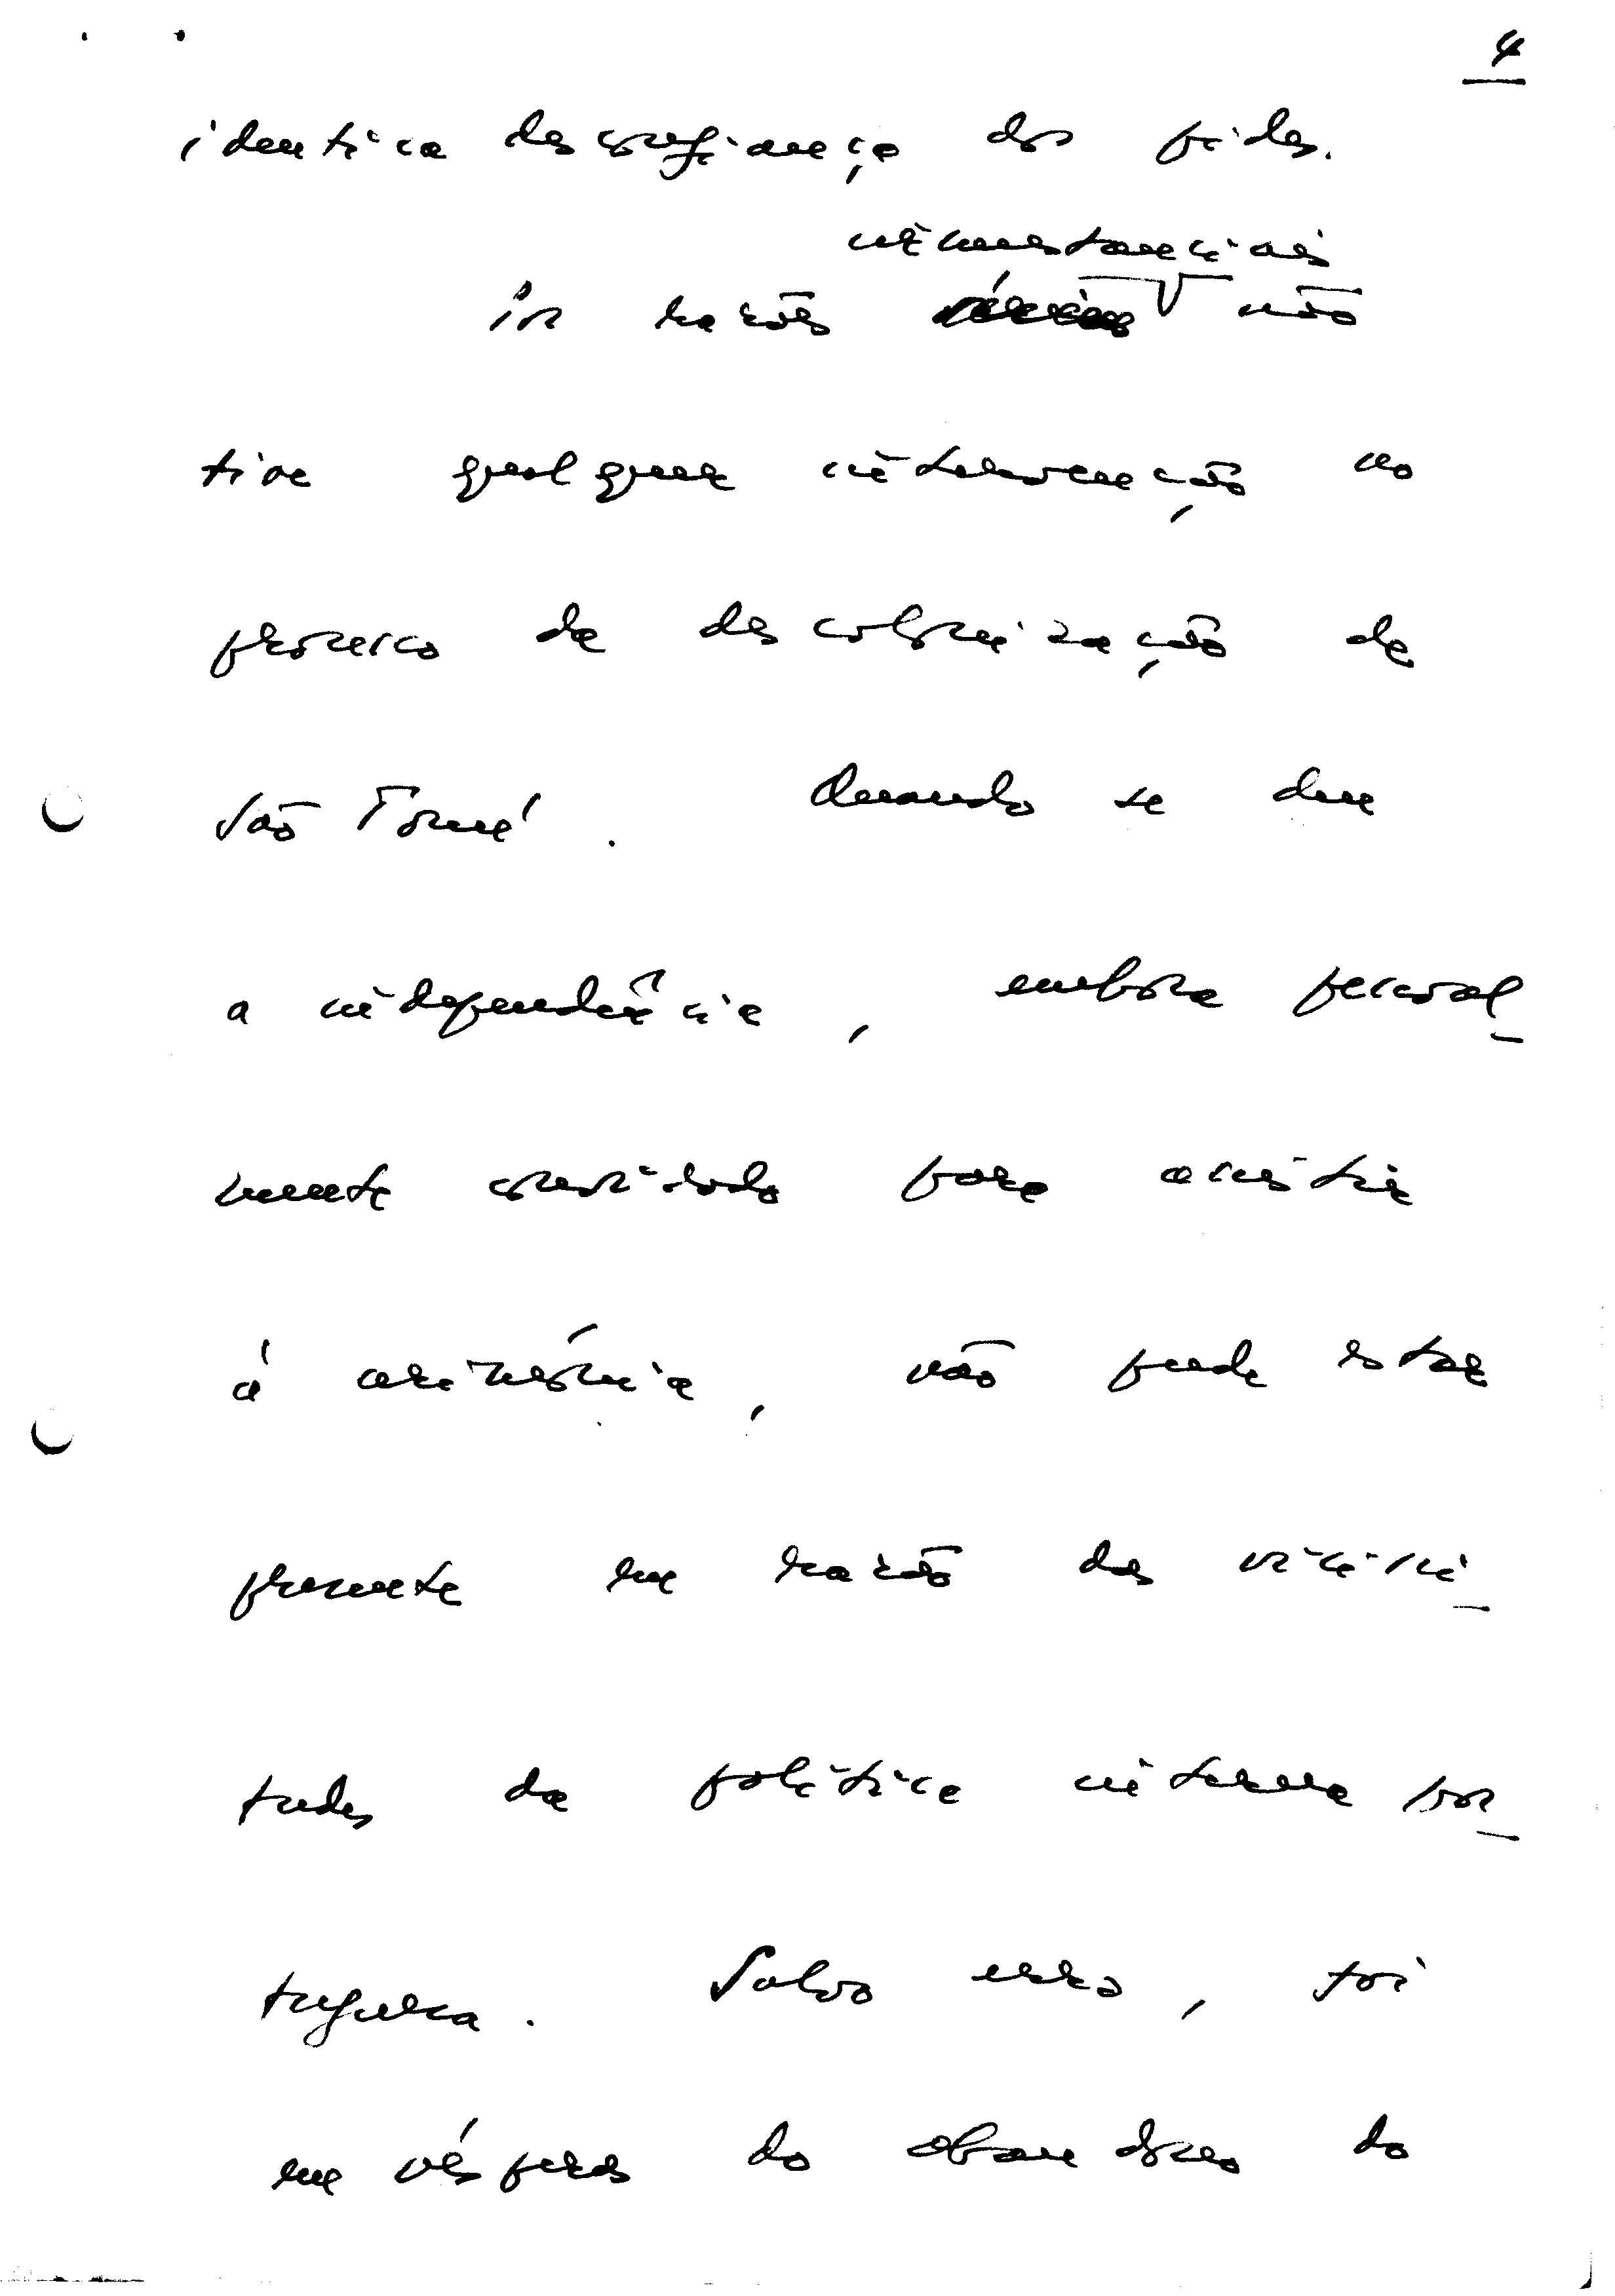 4
identica desconfiança dos fides.
circunstanciais
Por razões não
tive qualquer intervenção no
processo de descolonização de
São Tomé. Quando se deu
a independência, embora pessoal-
mente convidado para assistir
á cerimónia, não pude estar
presente em razão das vicissi-
tudes da política interna por-
tuguesa. Salvo erro, foi
em vésperas do abandono do